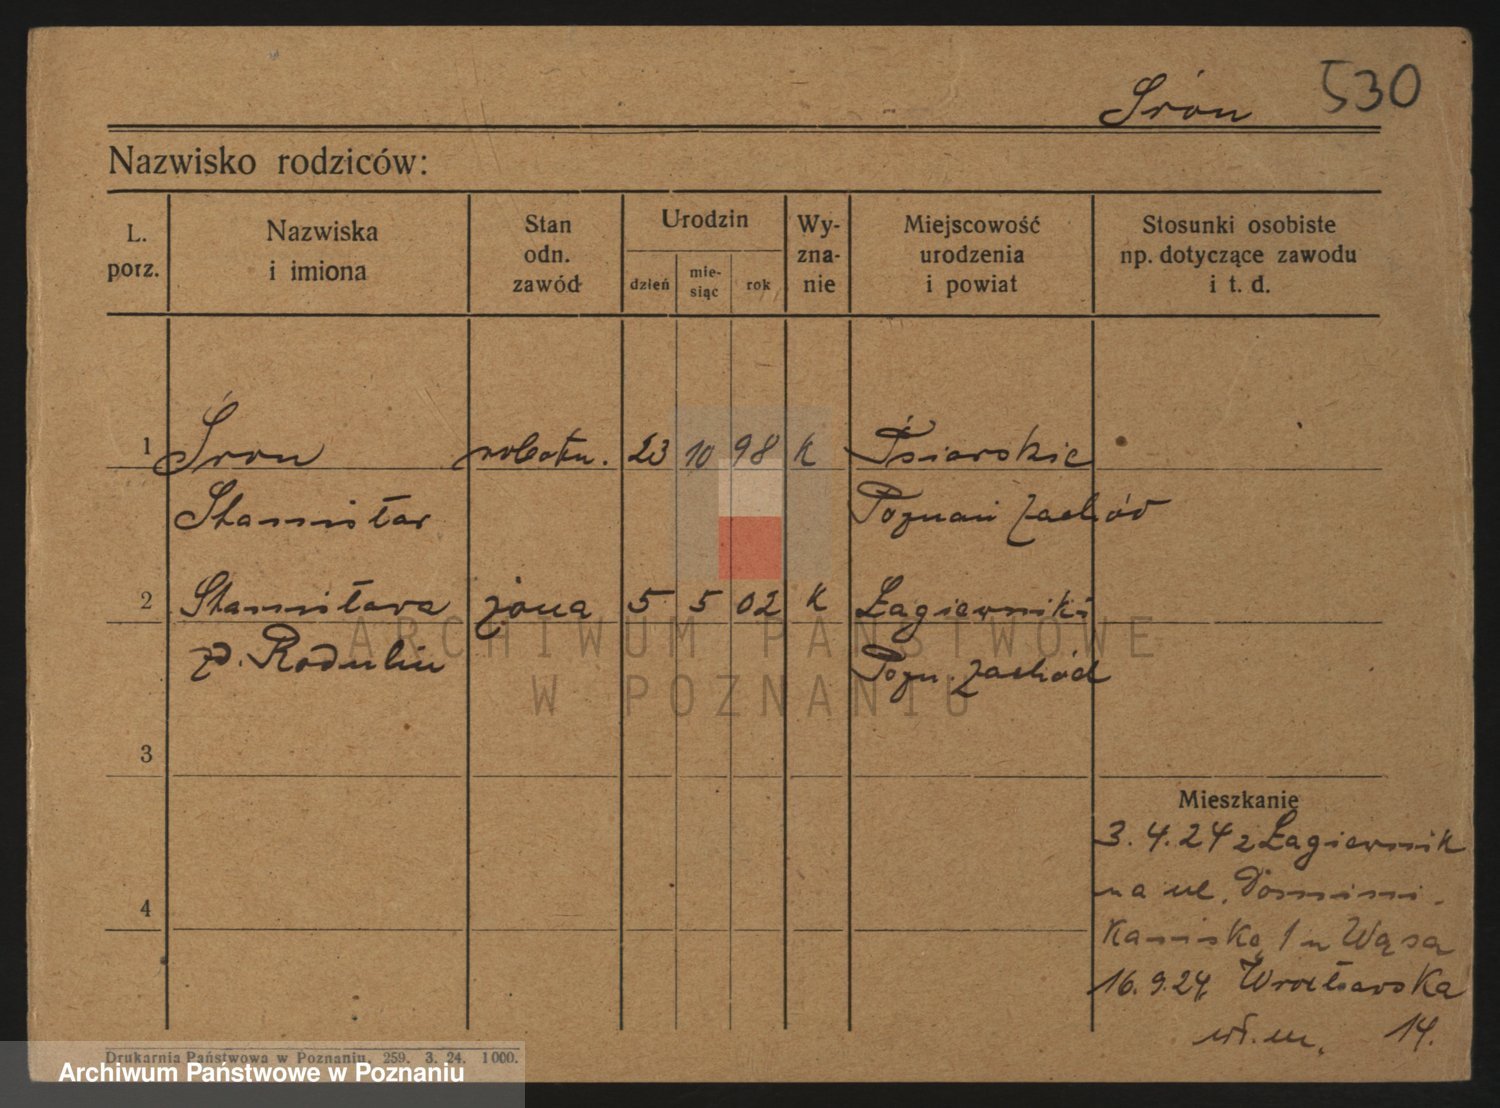 530
Śron
Nazwisko rodziców:
L. porz.
Nazwiska i imiona
Stan odn. zawód
Urodzin
dzień
mie-
siąc
rok
Wy-
zna-
nie
Miejscowość urodzenia i powiat
Stosunki osobiste np. dotyczące zawodu i t. d.
1 Śron robotn. 23 10 98 K
Stanisław Poznań zachód
2 Stanisława żona 5 5 02 K Łagiewniki
Pozn. zachód
3
4
Mieszkanie
3. 4. 24 z Łagiewnik
na ul. Domini-
kańską 1 u Wąsa
16. 9. 24, Wrocławska
wł. m. 14.
ARCHIWUM PAŃSTWOWE
W POZNANIU
Drukarnia Państwowa w Poznaniu. 259. 3. 24. 1000.
Archiwum Państwowe w Poznaniu